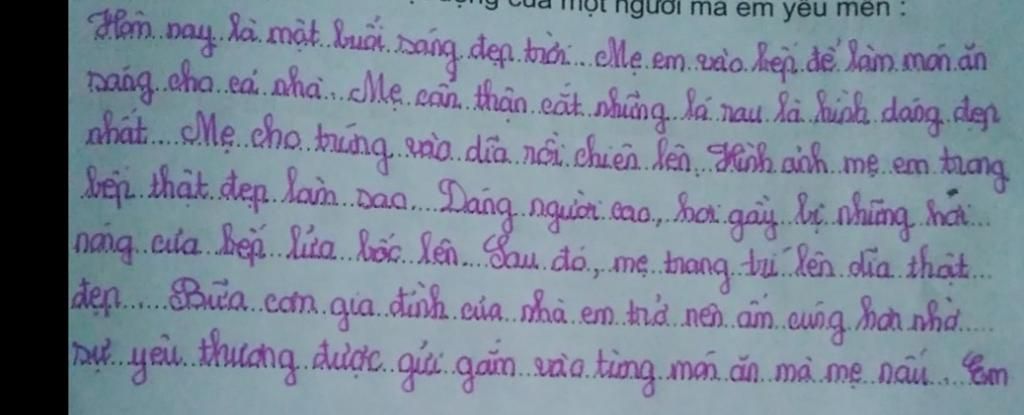 của một người mà em yêu mến :
Hôm nay là một buổi sáng đẹp trời. Mẹ em vào bếp để làm món ăn
sáng cho cả nhà. Mẹ cẩn thận cắt những lá rau là hình dáng đẹp
nhất. Mẹ cho trứng vào dĩa rồi chiên lên. Hình ảnh mẹ em trong
bếp thật đẹp làm sao. Dáng người cao, hơi gầy bị những hơi
nóng của bếp lửa bốc lên. Sau đó, mẹ trang trí lên dĩa thật
đẹp. Bữa cơm gia đình của nhà em trở nên ấm cúng hơn nhờ
sự yêu thương được gửi gắm vào từng món ăn mà mẹ nấu. Em